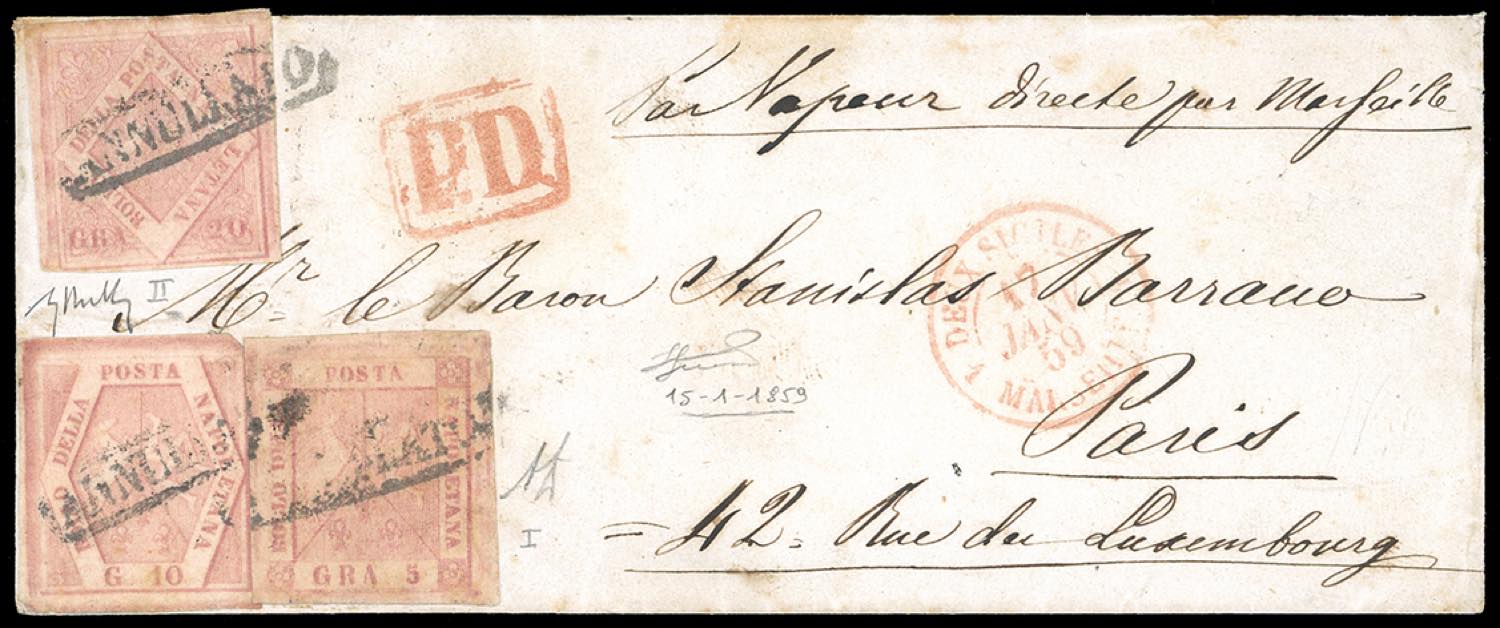 BOLLO DELLA POSTA NAPOLETANA
GRA 20
ANNULLATO
P.D
Par Vapeur directe par Marseille
II
Mr. le Baron Stanislas Barraco
DEUX SICILES
17
JANV
59
MARSEILLE
15-1-1859
Paris
= 42. Rue du Luxembourg
BOLLO DELLA POSTA NAPOLETANA
G 10
ANNULLATO
BOLLO DELLA POSTA NAPOLETANA
GRA 5
I